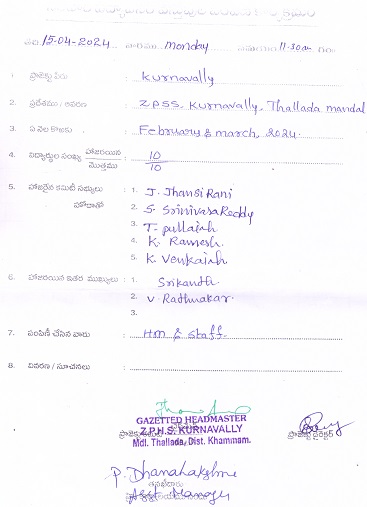 తేది 15-04-2024 వారము Monday సమయం 11-30am
1. ప్రాజెక్టు పేరు : Kurnavally
2. ప్రదేశము / వివరణ : ZPSS, Kurnavally, Thallada mandal
3. ఏ నెల కొరకు : February & march, 2024.
4. విద్యార్థుల సంఖ్య హాజరయిన / మొత్తము : 10 / 10
5. హాజరైన కమిటీ సభ్యులు హోదాతో : 1. J. Jhansi Rani
2. S. Srinivasa Reddy
3. T. pullaiah
4. K. Ramesh.
5. K. Venkaiah
6. హాజరయిన ఇతర ముఖ్యులు : 1. Srikanth
2. V. Rathnakar.
3.
7. పంపిణీ చేసిన వారు : HM & Staff.
8. వివరణ / సూచనలు :
GAZETTED HEADMASTER
Z.P.H.S. KURNAVALLY
Mdl. Thallada, Dist. Khammam.
ప్రాజెక్టు డైరెక్టర్
P. Dhanalakshmi
Asst Manager